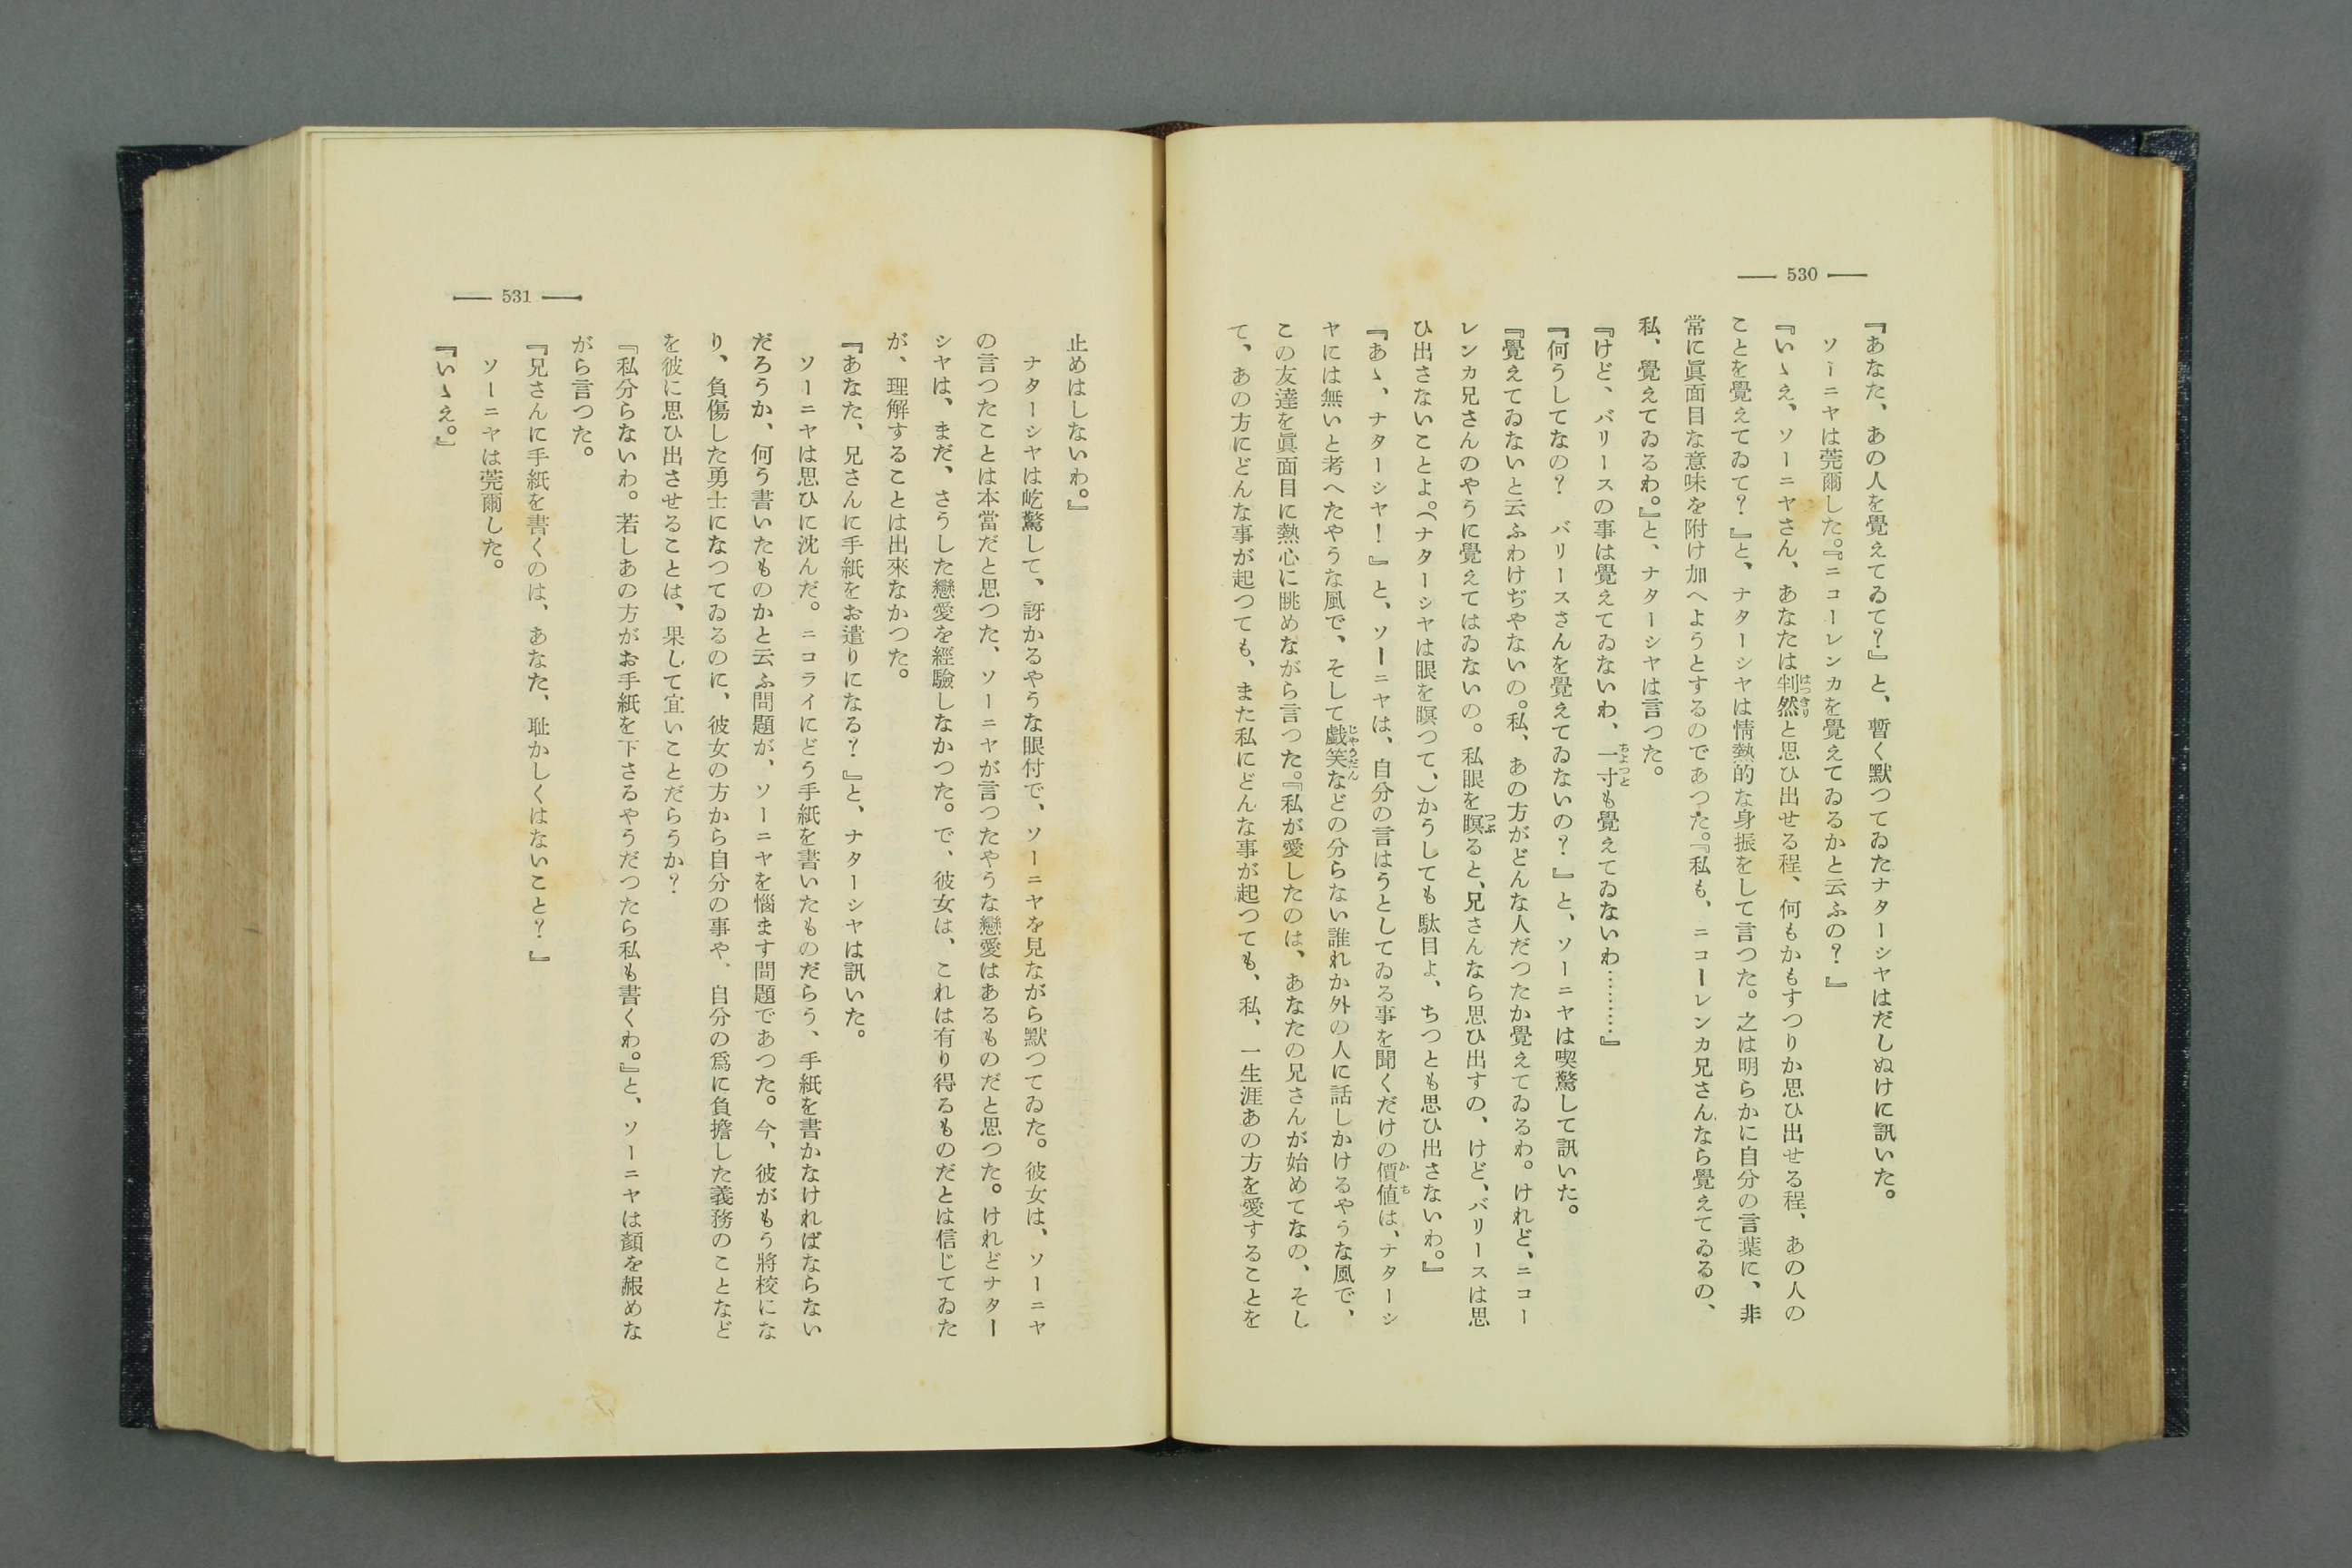 — 530 —
『あなた、あの人を覺えてゐて?』と、暫く默つてゐたナターシヤはだしぬけに訊いた。
ソーニヤは莞爾した。『ニコーレンカを覺えてゐるかと云ふの?』
『いゝえ、ソーニヤさん、あなたは判然と思ひ出せる程、何もかもすつりか思ひ出せる程、あの人の
ことを覺えてゐて?』と、ナターシヤは情熱的な身振をして言つた。之は明らかに自分の言葉に、非
常に眞面目な意味を附け加へようとするのであつた。『私も、ニコーレンカ兄さんなら覺えてゐるの、
私、覺えてゐるわ。』と、ナターシヤは言つた。
『けど、バリースの事は覺えてゐないわ、一寸も覺えてゐないわ………』
『何うしてなの? バリースさんを覺えてゐないの?』と、ソーニヤは喫驚して訊いた。
『覺えてゐないと云ふわけぢやないの。私、あの方がどんな人だつたか覺えてゐるわ。けれど、ニコー
レンカ兄さんのやうに覺えてはゐないの。私眼を瞑ると、兄さんなら思ひ出すの、けど、バリースは思
ひ出さないことよ。(ナターシヤは眼を瞑つて、)かうしても駄目よ、ちつとも思ひ出さないわ。』
『あゝ、ナターシヤ!』と、ソーニヤは、自分の言はうとしてゐる事を聞くだけの價値は、ナターシ
ヤには無いと考へたやうな風で、そして戯笑などの分らない誰れか外の人に話しかけるやうな風で、
この友達を眞面目に熱心に眺めながら言つた。『私が愛したのは、あなたの兄さんが始めてなの、そし
て、あの方にどんな事が起つても、また私にどんな事が起つても、私、一生涯あの方を愛することを
— 531 —
止めはしないわ。』
ナターシヤは屹驚して、訝かるやうな眼付で、ソーニヤを見ながら默つてゐた。彼女は、ソーニヤ
の言つたことは本當だと思つた、ソーニヤが言つたやうな戀愛はあるものだと思つた。けれどナター
シヤは、まだ、さうした戀愛を經驗しなかつた。で、彼女は、これは有り得るものだとは信じてゐた
が、理解することは出來なかつた。
『あなた、兄さんに手紙をお遣りになる?』と、ナターシヤは訊いた。
ソーニヤは思ひに沈んだ。ニコライにどう手紙を書いたものだらう、手紙を書かなければならない
だろうか、何う書いたものかと云ふ問題が、ソーニヤを惱ます問題であつた。今、彼がもう將校にな
り、負傷した勇士になつてゐるのに、彼女の方から自分の事や、自分の爲に負擔した義務のことなど
を彼に思ひ出させることは、果して宜いことだらうか?
『私分らないわ。若しあの方がお手紙を下さるやうだつたら私も書くわ。』と、ソーニヤは顏を赧めな
がら言つた。
『兄さんに手紙を書くのは、あなた、耻かしくはないこと?』
ソーニヤは莞爾した。
『いゝえ。』